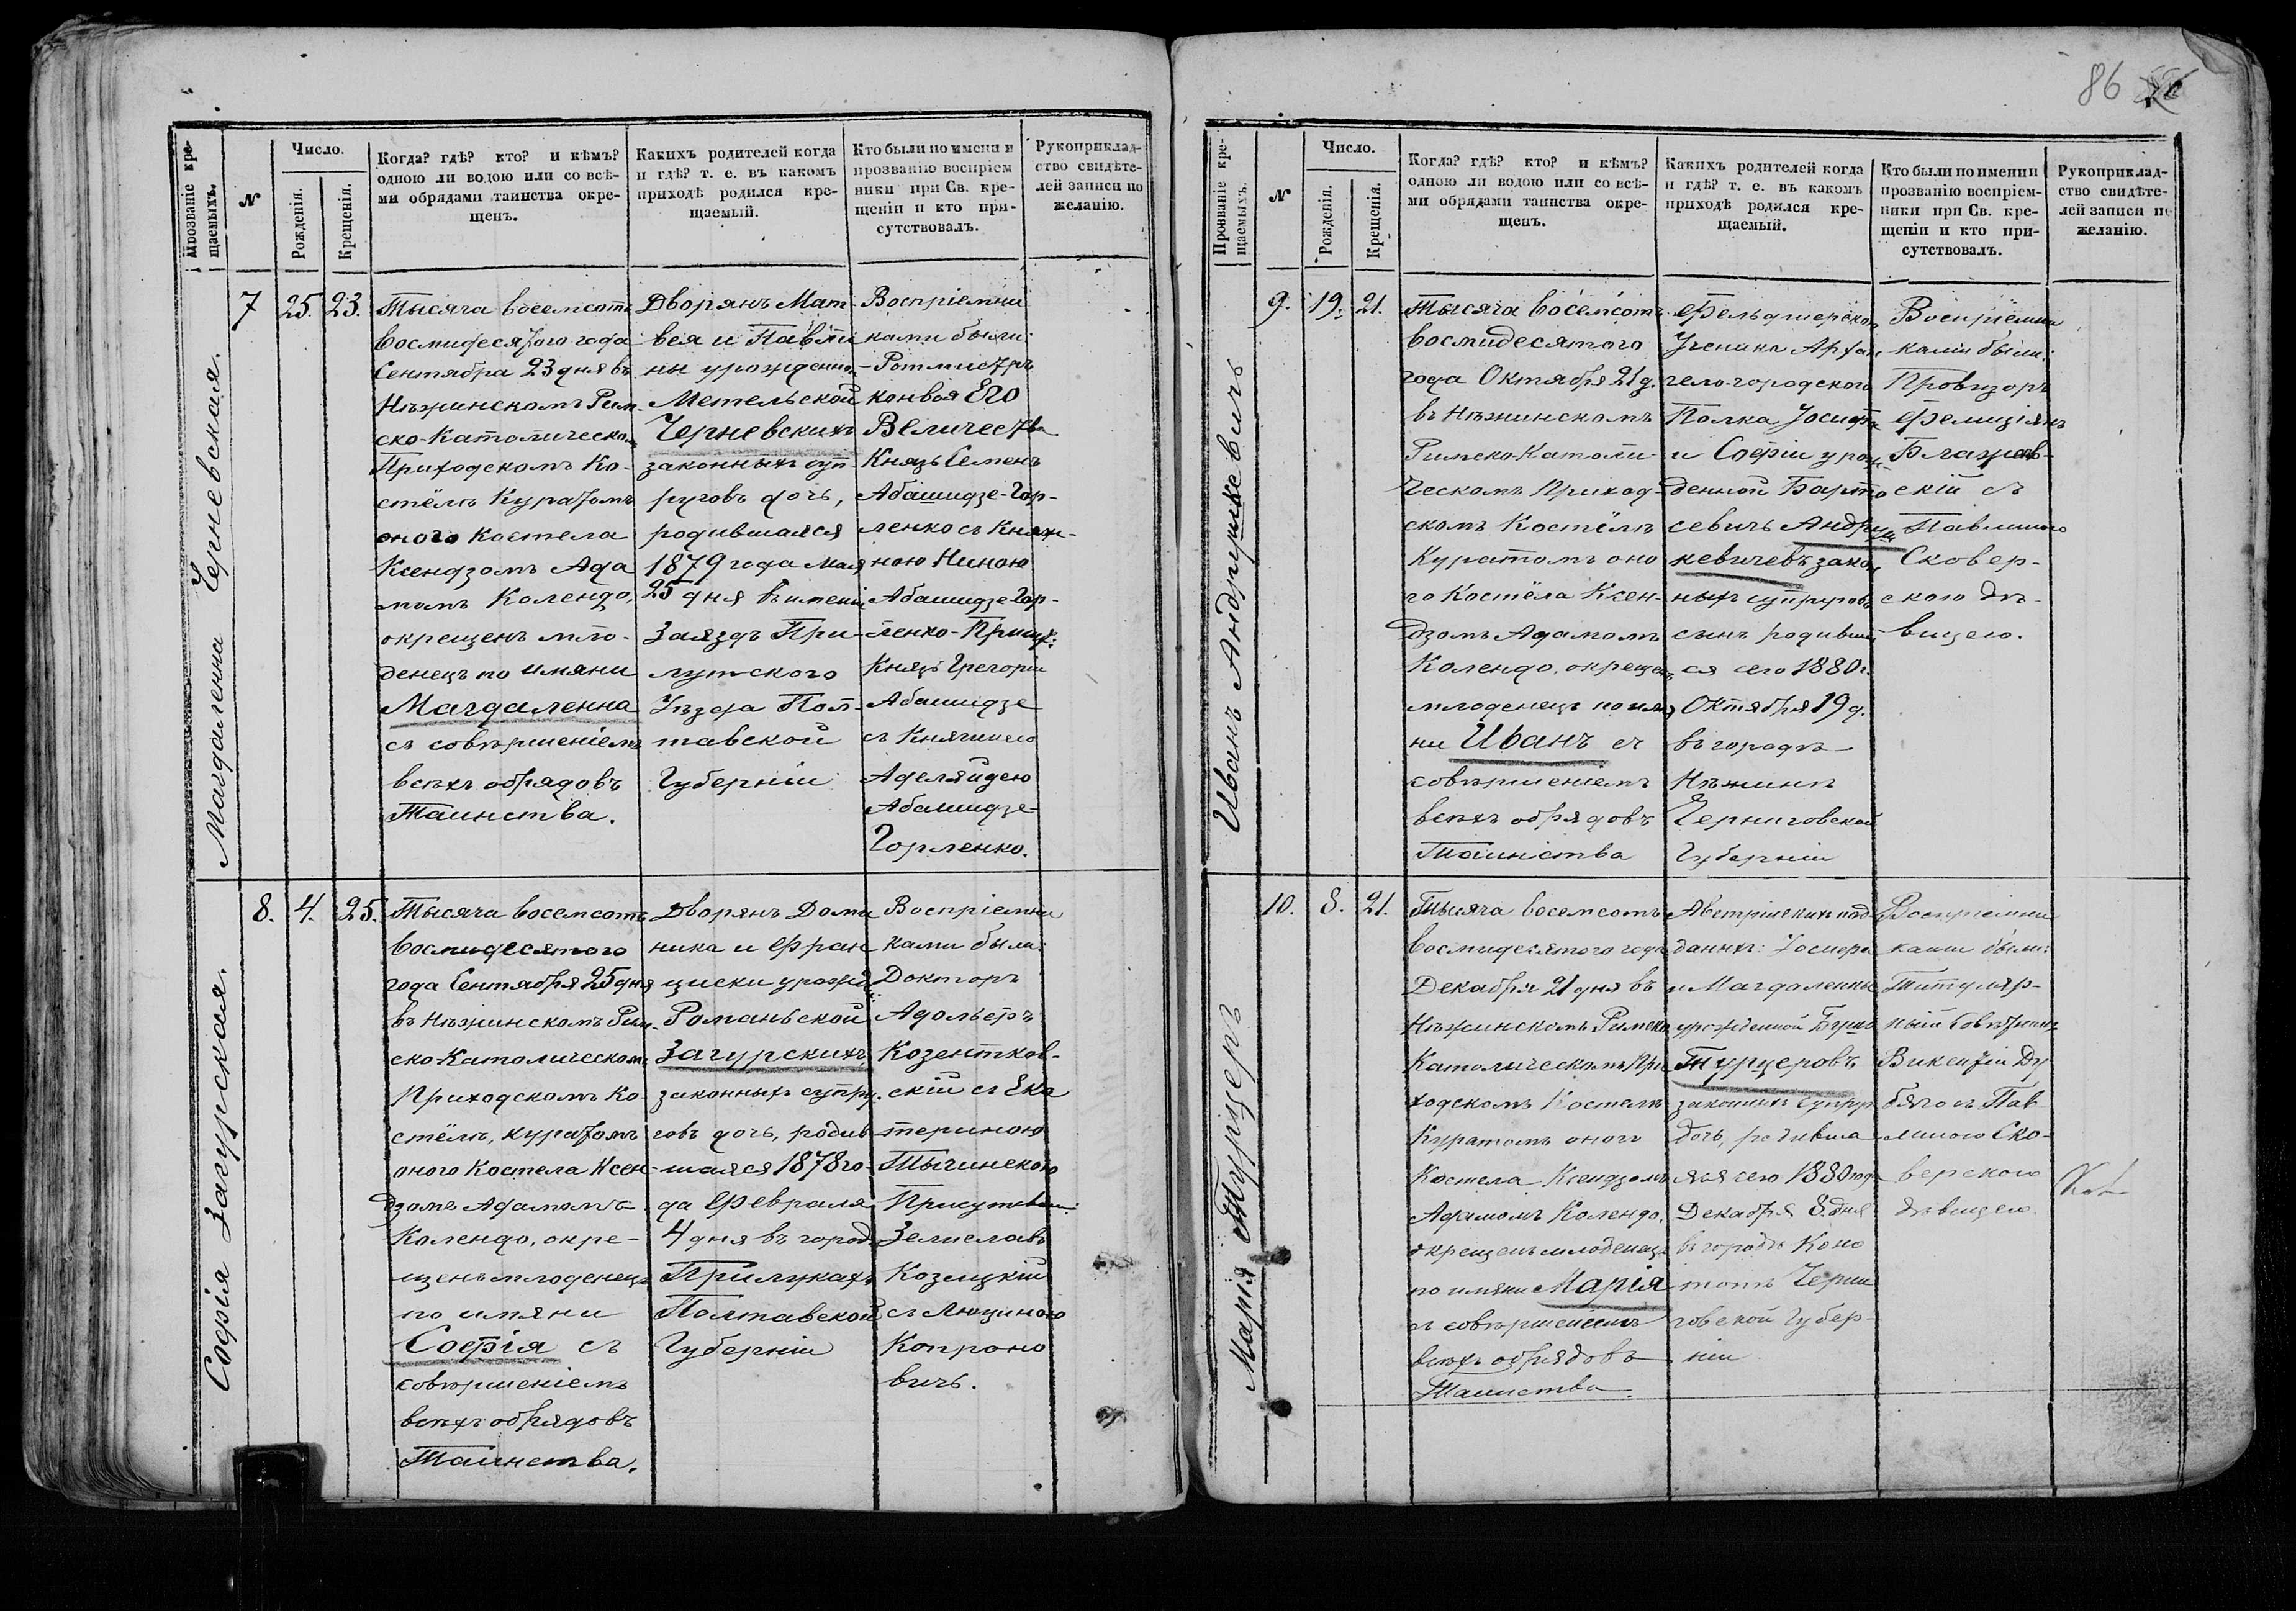 86
Прозваніе кре-
щаемыхъ.
N
Число.
Рожденія.
Крещенія.
Когда? гдѣ? кто? и кѣмъ?
одною ли водою или со всѣ-
ми обрядами таинства окре-
щенъ.
Какихъ родителей когда
и гдѣ? т. е. въ какомъ
приходѣ родился кре-
щаемый.
Кто были по имени и
прозванію воспріем
ники при Св. кре-
щеніи и кто при-
сутствовалъ.
Рукоприклад-
ство свидѣте-
лей записи по
желанію.
Магдаленна Черневская.
7
25.
23.
Тысяча восемсотъ
восмидесятого года
Сентября 23 дня въ
Нѣжинскомъ Рим-
ско-Католическомъ
Приходскомъ Ко-
стёлѣ Куратомъ
оного Костела
Ксендзомъ Ада
момъ Колендо,
окрещенъ мло-
денецъ по имяни
Магдаленна
съ совѣршеніемъ
всѣхъ обрядовъ
Таинства.
Дворянъ Мат-
вея и Павли
ны урожденной
Метельской
Черневскихъ
законныхъ суп-
руговъ дочь,
родившаяся
1879 года мая
25 дня въ имени
Заяздъ При-
лутского
Уѣзда Пол-
тавской
Губерніи
Воспріемни
ками были:
Ротмистръ
конвоя Его
Величества
Князь Семенъ
Абашидзе-Гор-
ленко съ Княж-
ною Ниною
Абашидзе-Гор-
ленко-Присут:
Князь Грегорій
Абашидзе
съ Княгинею
Аделяйдею
Абашидзе-
Горленко.
Софія Загурская.
8.
4.
25.
Тысяча восемсотъ
восмидесятого
года Сентября 25 дня
въ Нѣжинскомъ Рим-
ско-Католическомъ
Приходскомъ Ко-
стёлѣ, куратомъ
оного Костела Ксен-
дзомъ Адамомъ
Колендо, окре-
щенъ младенецъ
по имяни
Софія съ
совѣршеніемъ
всѣхъ обрядовъ
Таинства.
Дворянъ Доми
ника и Фран
циски урожд:
Романьской
Загурскихъ
законныхъ супру-
говъ дочь, родив
шаяся 1878 го-
да Февраля
4 дня въ городѣ
Прилукахъ
Полтавской
Губерніи
Воспріемни
ками были:
Докторъ
Адольфъ
Козентков-
скій съ Ека
териною
Тычинскою
Присутвов:
Земиславъ
Козицкій
съ Люциною
Копроно
вичь.
Прозваніе кре-
щаемыхъ.
N
Число.
Рожденія.
Крещенія.
Когда? гдѣ? кто? и кѣмъ?
одною ли водою или со всѣ-
ми обрядами таинства окре-
щенъ.
Какихъ родителей когда
и гдѣ? т. е. въ какомъ
приходѣ родился кре-
щаемый.
Кто были по имени и
прозванію воспріем-
ники при Св. кре-
щеніи и кто при-
сутствовалъ.
Рукоприклад-
ство свидѣте-
лей записи по
желанію.
Иванъ Андрушкевичь
9.
19.
21.
Тысяча восемсотъ
восмидесятого
года Октября 21 д.
въ Нѣжинскомъ
Римско-Католи-
ческомъ Приход-
скомъ Костёлѣ
Куратомъ оно
го Костёла Ксен-
дзомъ Адамомъ
Колендо, окрещенъ
младенецъ по имя
ни Иванъ съ
совѣршеніемъ
всѣхъ обрядовъ
Таинства
Фельдшерского
Ученика Архан
гело-городского
Полка Іосифа
и Софіи урож-
денной Барто
севичь Андруш
кевичевъ закон
ныхъ супруговъ
сынъ родивший
ся сего 1880 г.
Октября 19 д.
въ городѣ
Нѣжинѣ
Черниговской
Губерніи
Воспріемни
ками были:
Провизоръ
Фелиціянъ
Блажев-
скій съ
Павлиною
Сковер-
скою дѣ-
вицею.
Марія Турцеръ
10.
8.
21.
Тысяча восемсотъ
восмидесятого года
Декабря 21 дня въ
Нѣжинскомъ Римско
Католическомъ При
ходскомъ Костелѣ
Куратомъ оного
Костела Ксендзомъ
Адамомъ Колендо,
окрещенъ младенецъ
по имяни Марія
съ совѣршеніемъ
всѣхъ обрядовъ
Таинства.
Австрійскихъ под-
данныхъ: Іосифа
и Магдаленны
урожденной
Турцеровъ
законныхъ супруг
дочь, родивша
яся сего 1880 года
Декабря 8. дня
въ городѣ Коно
топѣ Черни
говской Губер-
ніи
Воспріемни
ками были:
Титуляр-
ный Совѣтникъ
Викентій Ду
бяго съ Пав
линою Ско-
верскою
дѣвицею.